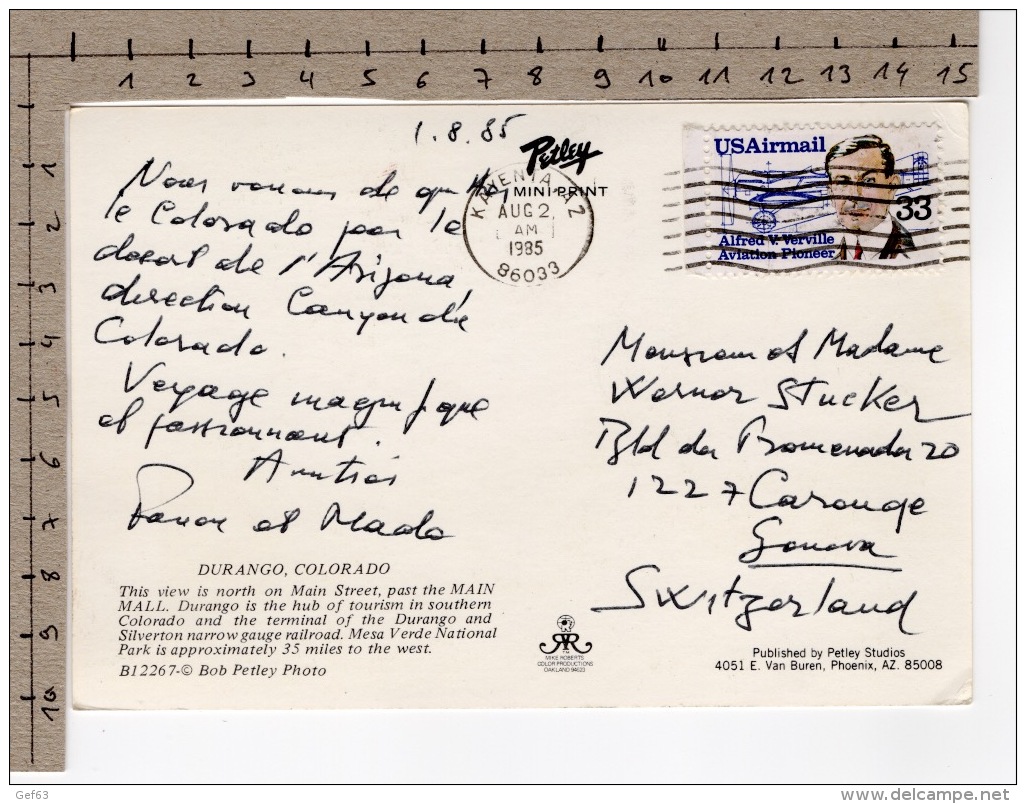 1 2 3 4 5 6 7 8 9 10 11 12 13 14 15
1
2
3
4
5
6
7
8
9
10
1.8.85
Petley
MINI PRINT
KAYENTA, AZ
AUG 2
AM
1985
86033
USAirmail
33
Alfred V. Verville
Aviation Pioneer
Nous venons de quitter
le Colorado pour le
desert de l'Arizona,
direction Canyon du
Colorado.
Voyage magnifique
et passionnant.
Amitiés
et Mado
Monsieur et Madame
Werner Stucker
Bld des Promenades 20
1227 Carouge
Geneva
Switzerland
DURANGO, COLORADO
This view is north on Main Street, past the MAIN
MALL. Durango is the hub of tourism in southern
Colorado and the terminal of the Durango and
Silverton narrow gauge railroad. Mesa Verde National
Park is approximately 35 miles to the west.
B12267-© Bob Petley Photo
TM
MIKE ROBERTS
COLOR PRODUCTIONS
OAKLAND 94623
Published by Petley Studios
4051 E. Van Buren, Phoenix, AZ. 85008
Gef63
www.delcampe.net